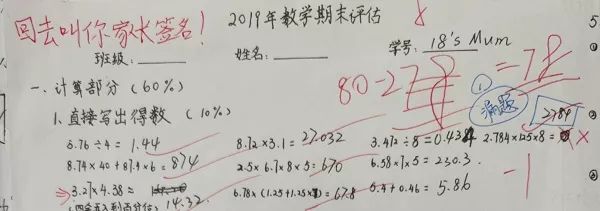 回去叫你家长签名!
2019年数学期末评估
班级:________ 姓名:________ 学号: 18's Mum
80-2
=78
一、计算部分 (60%)
漏题
2784
1、直接写出得数 (10%)
5.76÷4= 1.44 8.72×3.1= 27.032 3.472÷8=0.434 2.784×125×8=
8.74×40+87.4×6= 874 2.5×6.7×8×5= 670 6.58×7×5= 230.3
3.27×4.38≈ 6.78×(1.25+1.25× = 67.8 5.4+0.46= 5.86
(四舍五入到百分位) 14.32
-1